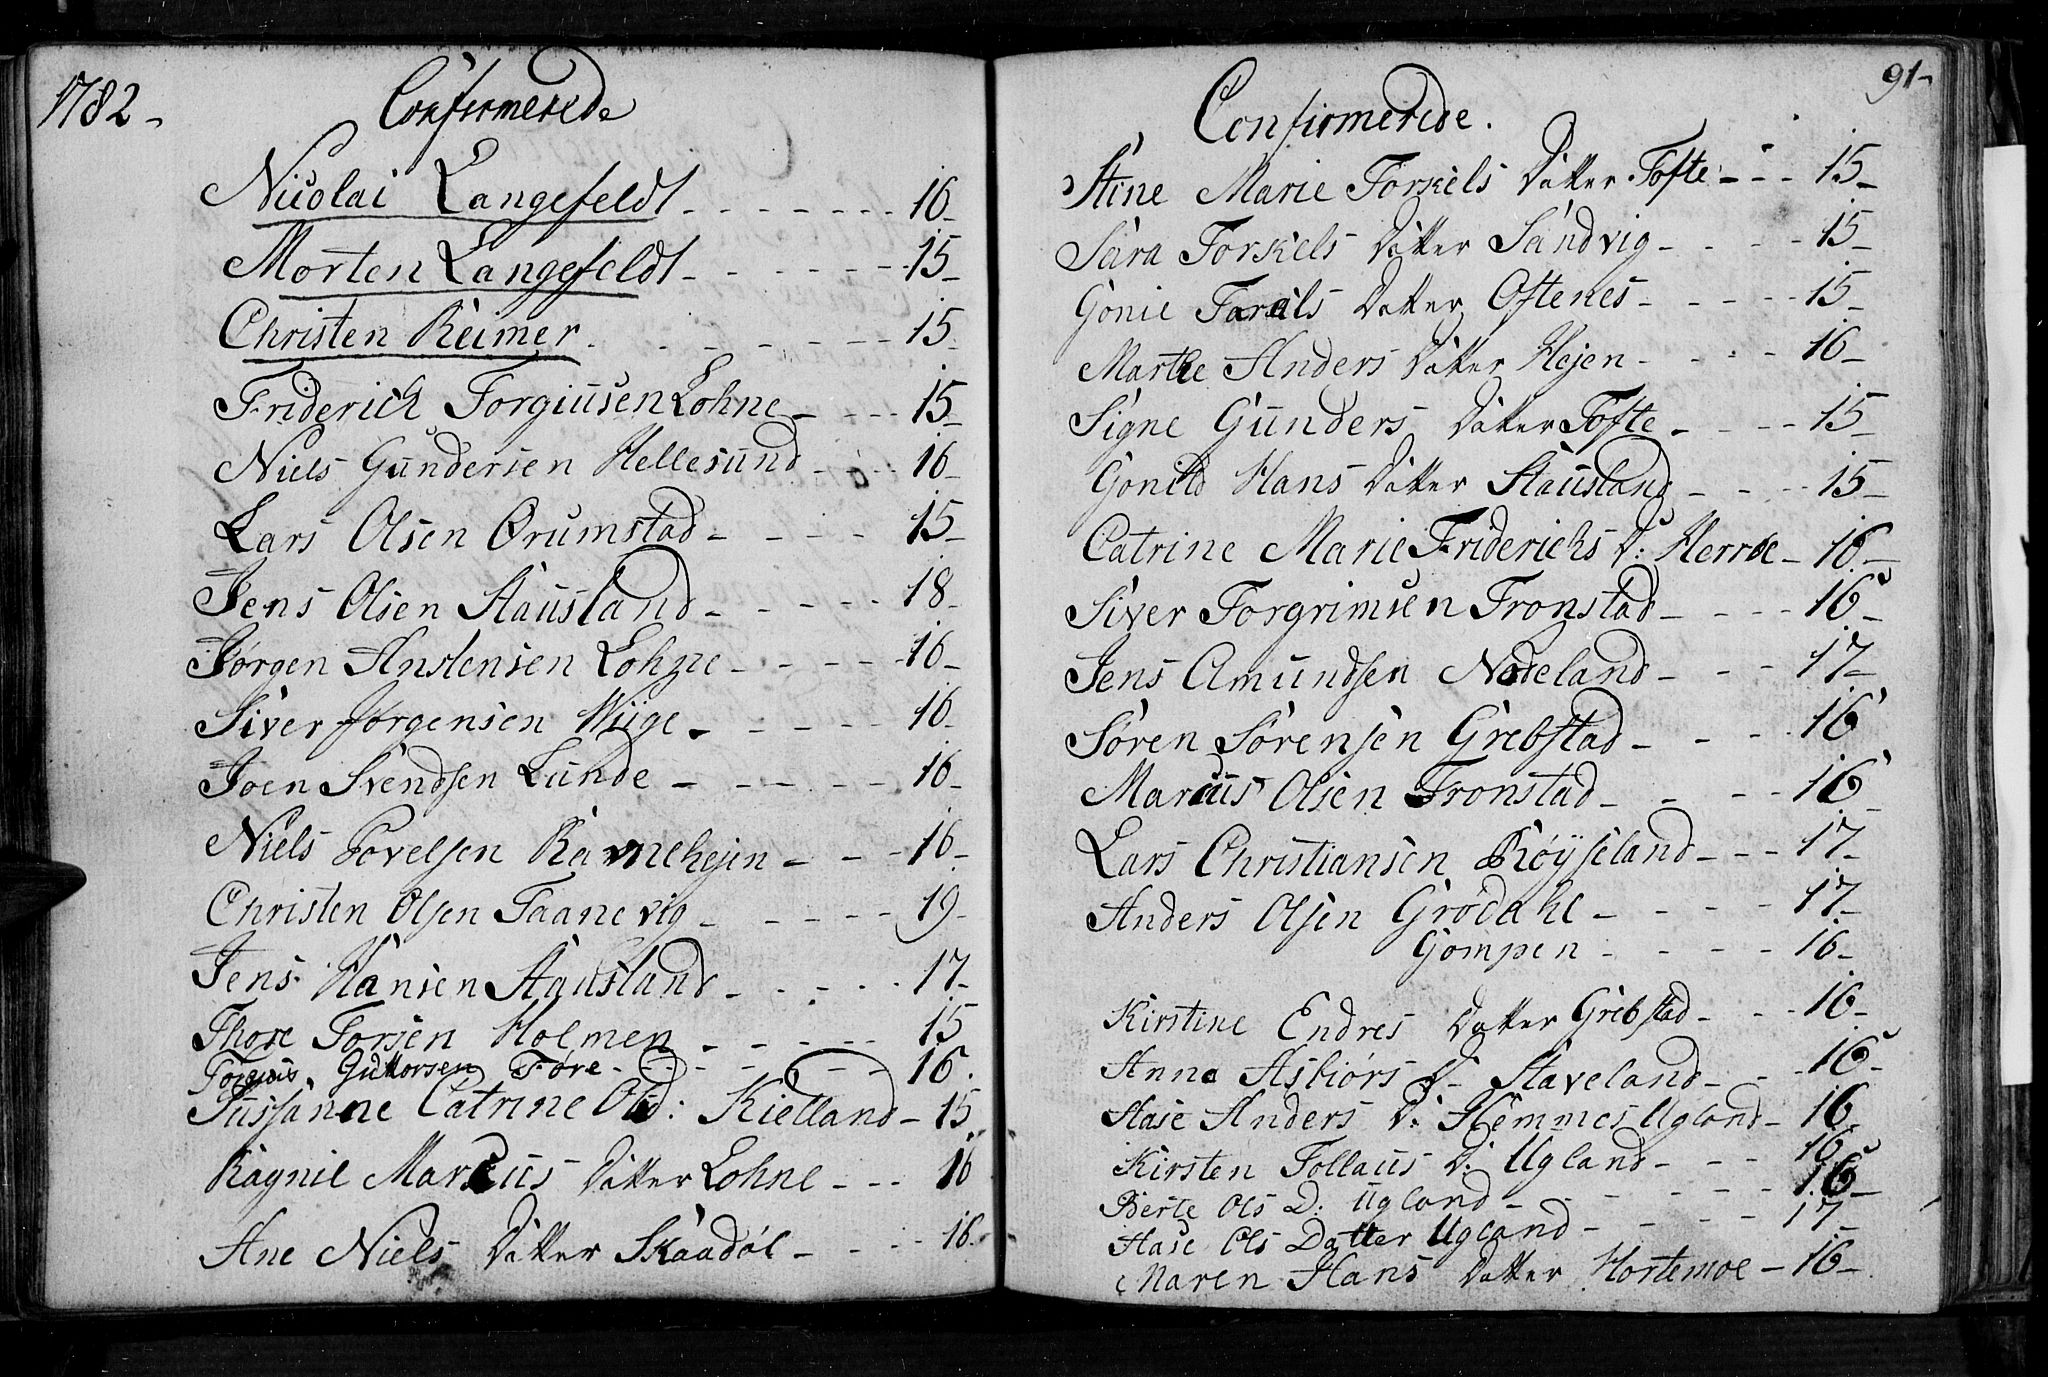 1782 -
Confirmerede
Nicolai Langefeldt - - - - - - - 16 -
Morten Langefeldt - - - - - - - 15 -
Christen Reimer - - - - - - - 15 -
Friderich Torgiusen Lohne - - - - 15 -
Niels Gundersen Hellesund - - - 16 -
Lars Olsen Ørumstad - - - - 15 -
Jens Olsen Stausland - - - - - 18 -
Jørgen Anstensen Lohne - - - - - 16 -
Siver Jørgensen Wiige - - - - - 16 -
Joen Svendsen Lunde - - - - - 16 -
Niels Tovelsen Ravnehejen - - - 16 -
Christen Olsen Taanevig - - - - - 19 -
Jens Hansen Stausland - - - - - 17 -
Thore Torsen Holmen - - - - - 15
Torgius Guttorsen Føre - - - - - - - 16.
Sussanne Catrine Ols D: Kielland - 15
Ragnil Marcus Datter Lohne - - - 16
Ane Niels Datter Skaadøl - - - - 16 -
91 -
Confirmerede.
Stine Marie Torkels Datter Tofte - - - 15 -
Sara Torkels Datter Sandvig - - - - 15 -
Gonil Datter Oftenes - - - - - 15 -
Marthe Anders Datter Hejen - - - - 16 -
Signe Gunders Datter Tofte - - - - 15 -
Gonild Hans Datter Stausland - - - - 15 -
Catrine Marie Friderichs D: Herröe - 16 -
Siver Torgrimsen Tronstad - - - - 16 -
Jens Amundsen Nodeland - - - 17 -
Sören Sörensen Grebstad - - - - 16
Marcus Olsen Tronstad - - - - 16 -
Lars Christiansen Röyseland - - - 17 -
Anders Olsen Grødahl - - - - 17 -
Gompen - - - - 16 -
Kirstine Endres Datter Grebstad - - - 16 -
Anna Asbiørs D - Staveland - - - 16 -
Aase Anders D: Hemmes Ugland - 16
Kirsten Tollaus D: Ugland - - - 16
Berte Ols D: Ugland - - - - - - 16 -
Aase Ols Datter Ugland - - - - - 17 -
Maren Hans Datter Hortemoe - 16 -